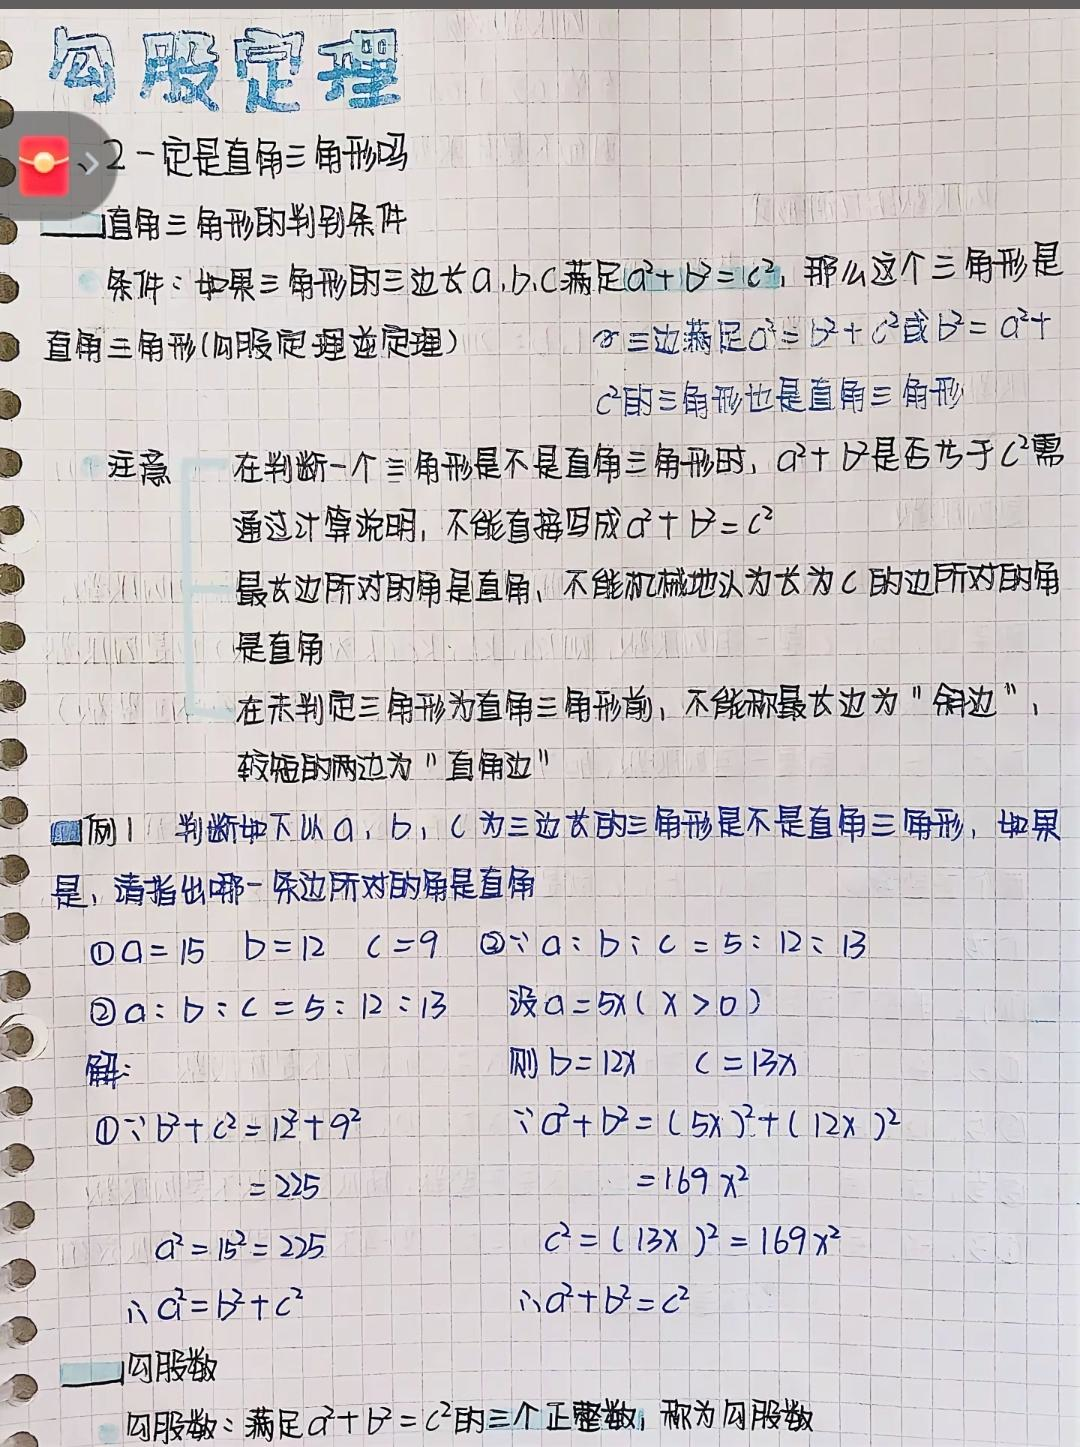 勾股定理
、2 一定是直角三角形吗
直角三角形的判别条件
条件：如果三角形的三边长a,b,c满足a²+b²=c²，那么这个三角形是
直角三角形(勾股定理逆定理)
三边满足a²=b²+c²或b²=a²+
c²的三角形也是直角三角形
注意
在判断一个三角形是不是直角三角形时，a²+b²是否等于c²需
通过计算说明，不能直接写成a²+b²=c²
最长边所对的角是直角、不能机械地认为长为c的边所对的角
是直角
在未判定三角形为直角三角形前，不能称最长边为"斜边"，
较短的两边为"直角边"
例1 判断如下以a，b，c为三边长的三角形是不是直角三角形，如果
是，请指出哪一条边所对的角是直角
①a=15 b=12 c=9
②a:b:c=5:12:13
解:
①∵b²+c²=12²+9²
=225
a²=15²=225
∴a²=b²+c²
②∵a:b:c=5:12:13
设a=5x(x>0)
则b=12x c=13x
∵a²+b²=(5x)²+(12x)²
=169x²
c²=(13x)²=169x²
∴a²+b²=c²
勾股数
勾股数：满足a²+b²=c²的三个正整数，称为勾股数